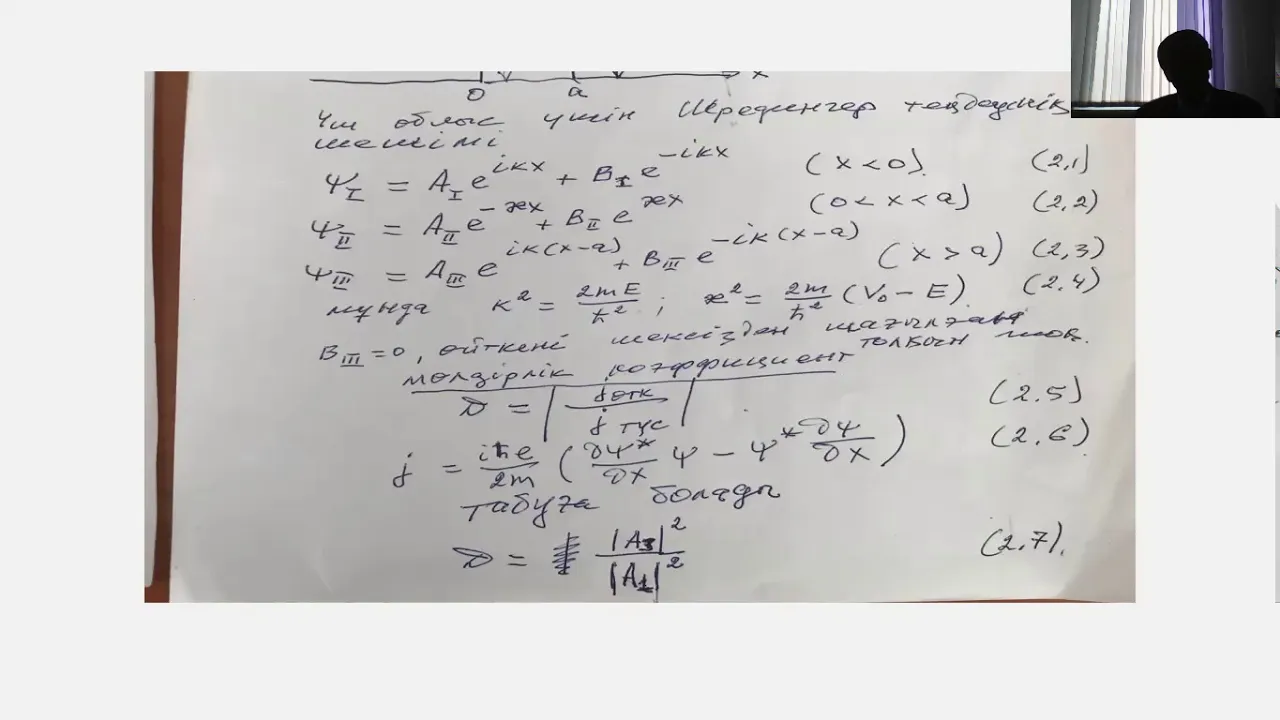 0 a x
Үш облыс үшін Шредингер теңдеуінің
шешімі
Ψ_I = A_I e^{iкx} + B_I e^{-iкx} (x < 0). (2,1)
Ψ_II = A_II e^{-æx} + B_II e^{æx} (0 < x < a) (2,2)
Ψ_III = A_III e^{iк(x-a)} + B_III e^{-iк(x-a)} (x > a) (2,3)
мұнда к² = 2mE/ħ² ; æ² = 2m/ħ² (V₀ - E). (2.4)
B_III = 0, өйткені шексізден шағылған
толқын жоқ.
мөлдірлік коэффициент
D = |jөтк / jтүс| (2.5)
j = iħe/2m (∂Ψ*/∂x Ψ - Ψ* ∂Ψ/∂x) (2,6)
табуға болады
D = |A₃|² / |A₁|² (2,7).